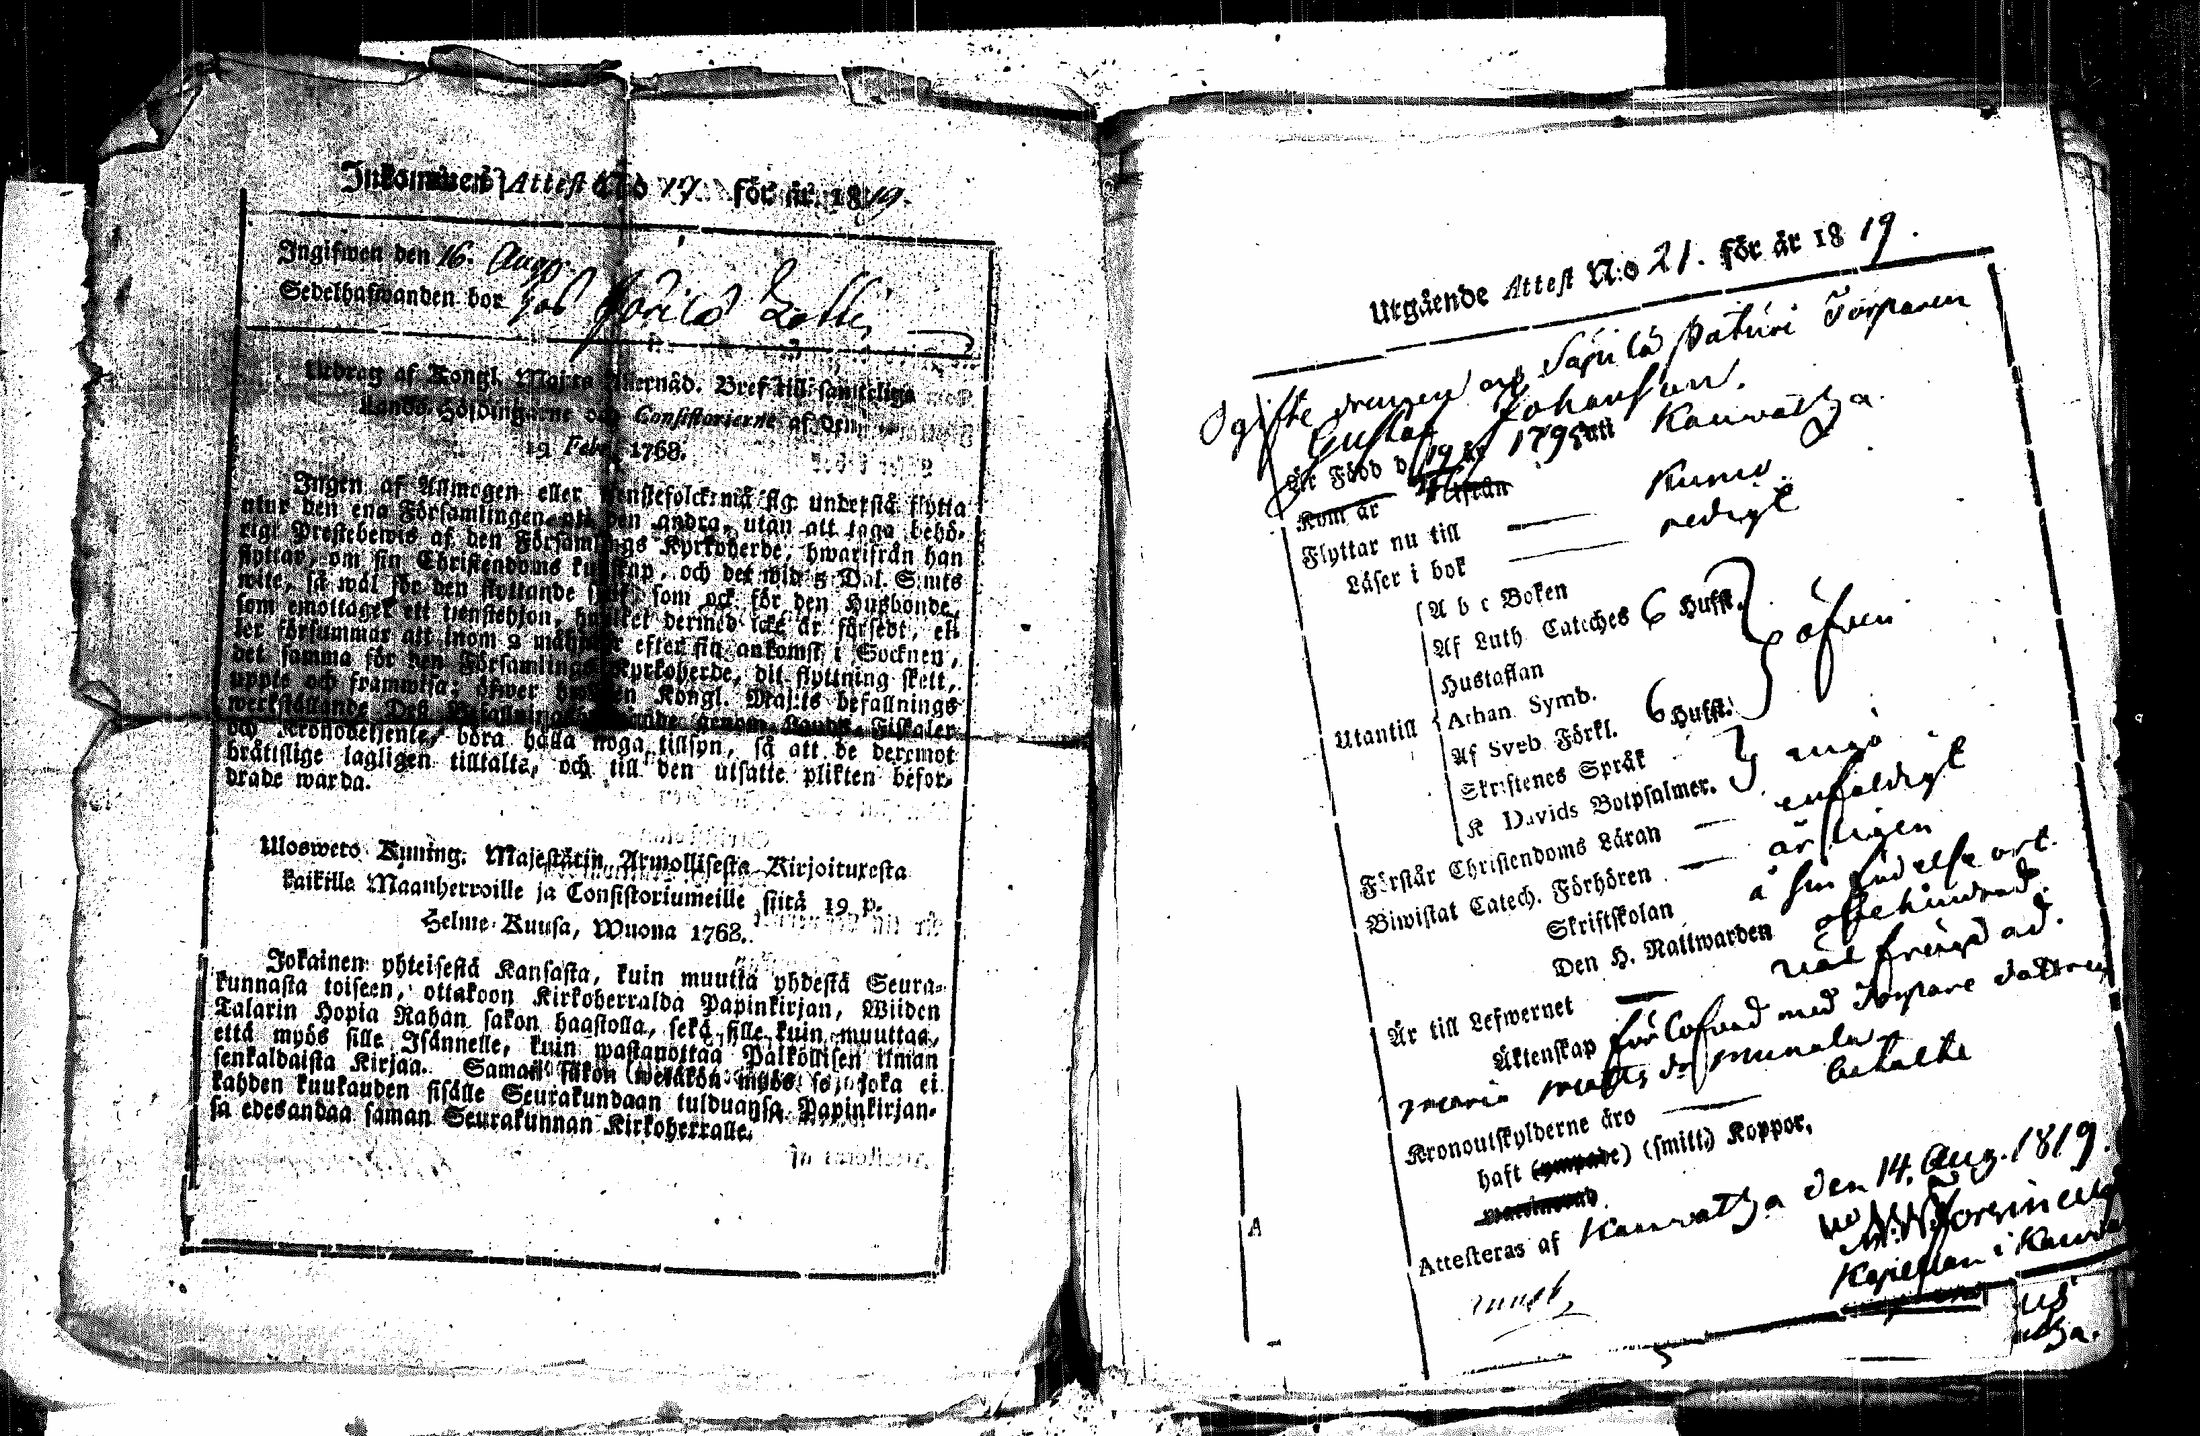 Inkommen Attest N:o 17 för år 1819.
Ingifwen den 16. Aug.
Sedelhafwanden bor hos
Utdrag af Kongl. Maj:ts Allernåd. Bref till samteliga
Lands-Höfdingarne och Consistorierne af den
19 Febr. 1768.
Ingen af Allmogen eller tienstefolck må sig understå flytta
utur den ena Församlingen till den andra, utan att taga behö-
rigt Prestebewis af den Församlings Kyrkoherde, hwarifrån han
flyttar, om sin Christendoms kunskap, och det wid 5 Dal. S:mts
wite, så wäl för den flyttande sielf, som ock för den Husbonde,
som emottager ett tienstehjon, hwilket dermed icke är försedt, ell
ler försummar att inom 2 månader efter sin ankomst i Socknen,
det samma för den Församlings Kyrkoherde, dit flyttning skett,
uppte och framwisa; öfwer hwilken Kongl. Maj:ts befallnings
werkställande Deß Befallningshafwande genom Lands-Fiskaler
och Kronobetjente, böra hålla noga tillsyn, så att de deremot
bråttslige lagligen tilltalte, och till den utsatte plikten befor-
drade warda.
Ulosweto Kuning. Majestätin Armollisesta Kirjoituxesta
kaikille Maanherroille ja Consistoriumeille siitä 19 p.
Helme-Kuusa, Wuona 1768.
Jokainen yhteisestä Kansasta, kuin muutta yhdestä Seura-
kunnasta toiseen, ottakoon Kirkoherralda Papinkirjan, Wiiden
Talarin Hopia Rahan sakon haastolla, sekä sille kuin muuttaa,
että myös sille Isännelle, kuin wastanottaa Palkollisen ilman
senkaldaista Kirjaa. Saman sakon wetäkön myös se, joka ei
kahden kuukauden sisälle Seurakundaan tulduansa Papinkirjan-
sa edesandaa saman Seurakunnan Kirkoherralle.
Utgående Attest N:o 21. för år 1819.
Ogifte drengen och Torparen
Gustaf Johansson.
Är Född d. 19 1795 uti Kauvatza.
Kom år ifrån
Flyttar nu till — Kumo.
Läser i bok — redigt
A b c Boken
Af Luth Catches 6 Hufst.
Hustaflan
Athan. Symb.
Utantill
Af Sveb. Förkl. 6 Hufst.
Skriftenes Språk
K Davids Botpsalmer.
Förstår Christendoms Läran — enfaldigt
Biwistat Catech. Förhören — årligen
Skriftskolan å sin födelse ort.
Den H. Nattwarden obehindrad.
Är till Lefwernet — väl frägdad.
Äktenskap förlofvad med Torpare dottren
Maria Matts dr
Kronoutskylderne äro — betalte
haft (ympade) (smitt) Koppor,
Attesteras af Kauvatza den 14. Aug. 1819.
Kapellan i